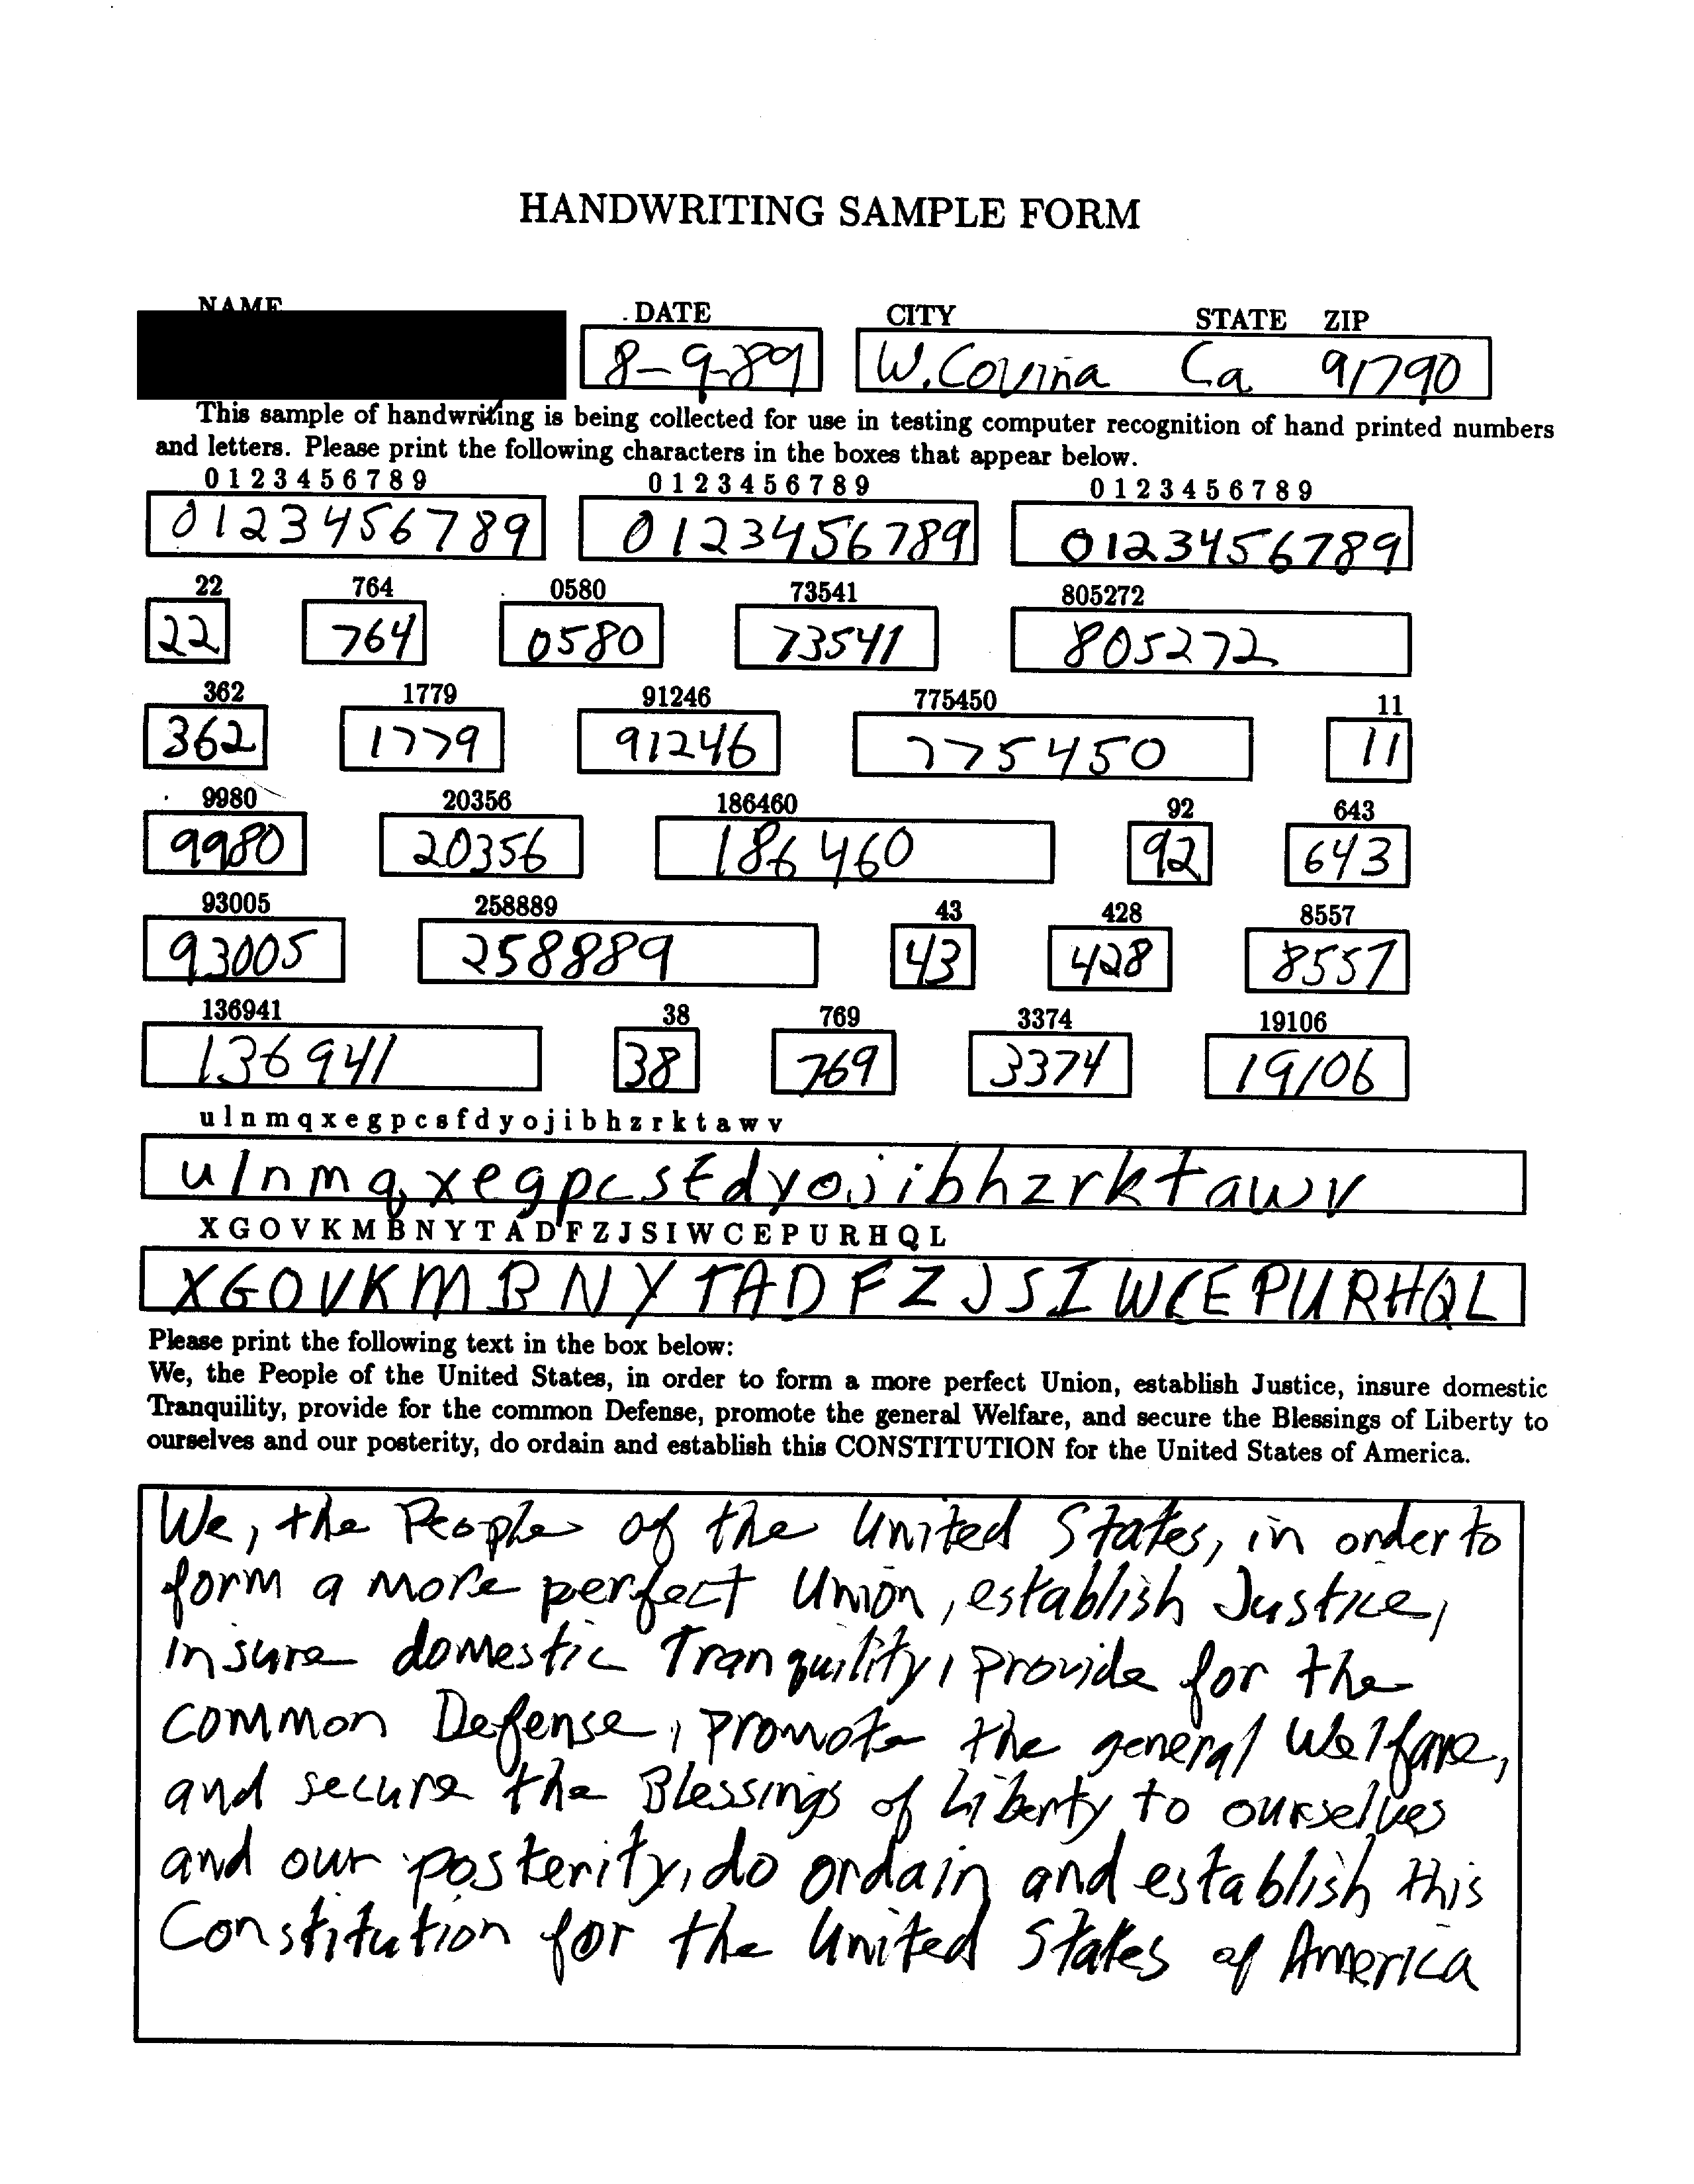 HANDWRITING SAMPLE FORM
NAME DATE CITY STATE ZIP
8-9-89 W. Covina Ca 91790
This sample of handwriting is being collected for use in testing computer recognition of hand printed numbers
and letters. Please print the following characters in the boxes that appear below.
0 1 2 3 4 5 6 7 8 9 0 1 2 3 4 5 6 7 8 9 0 1 2 3 4 5 6 7 8 9
0123456789 0123456789 0123456789
22 764 0580 73541 805272
22 764 0580 73541 805272
362 1779 91246 775450 11
362 1779 91246 775450 11
9980 20356 186460 92 643
9980 20356 186460 92 643
93005 258889 43 428 8557
93005 258889 43 428 8557
136941 38 769 3374 19106
136941 38 769 3374 19106
u l n m q x e g p c s f d y o j i b h z r k t a w v
ulnmqxegpcsfdyojibhzrktawv
X G O V K M B N Y T A D F Z J S I W C E P U R H Q L
XGOVKMBNYTADFZJSIWCEPURHQL
Please print the following text in the box below:
We, the People of the United States, in order to form a more perfect Union, establish Justice, insure domestic
Tranquility, provide for the common Defense, promote the general Welfare, and secure the Blessings of Liberty to
ourselves and our posterity, do ordain and establish this CONSTITUTION for the United States of America.
We, the People of the United States, in order to
form a more perfect Union, establish Justice,
insure domestic Tranquility, provide for the
common Defense, promote the general Welfare,
and secure the Blessings of Liberty to ourselves
and our posterity, do ordain and establish this
Constitution for the United States of America